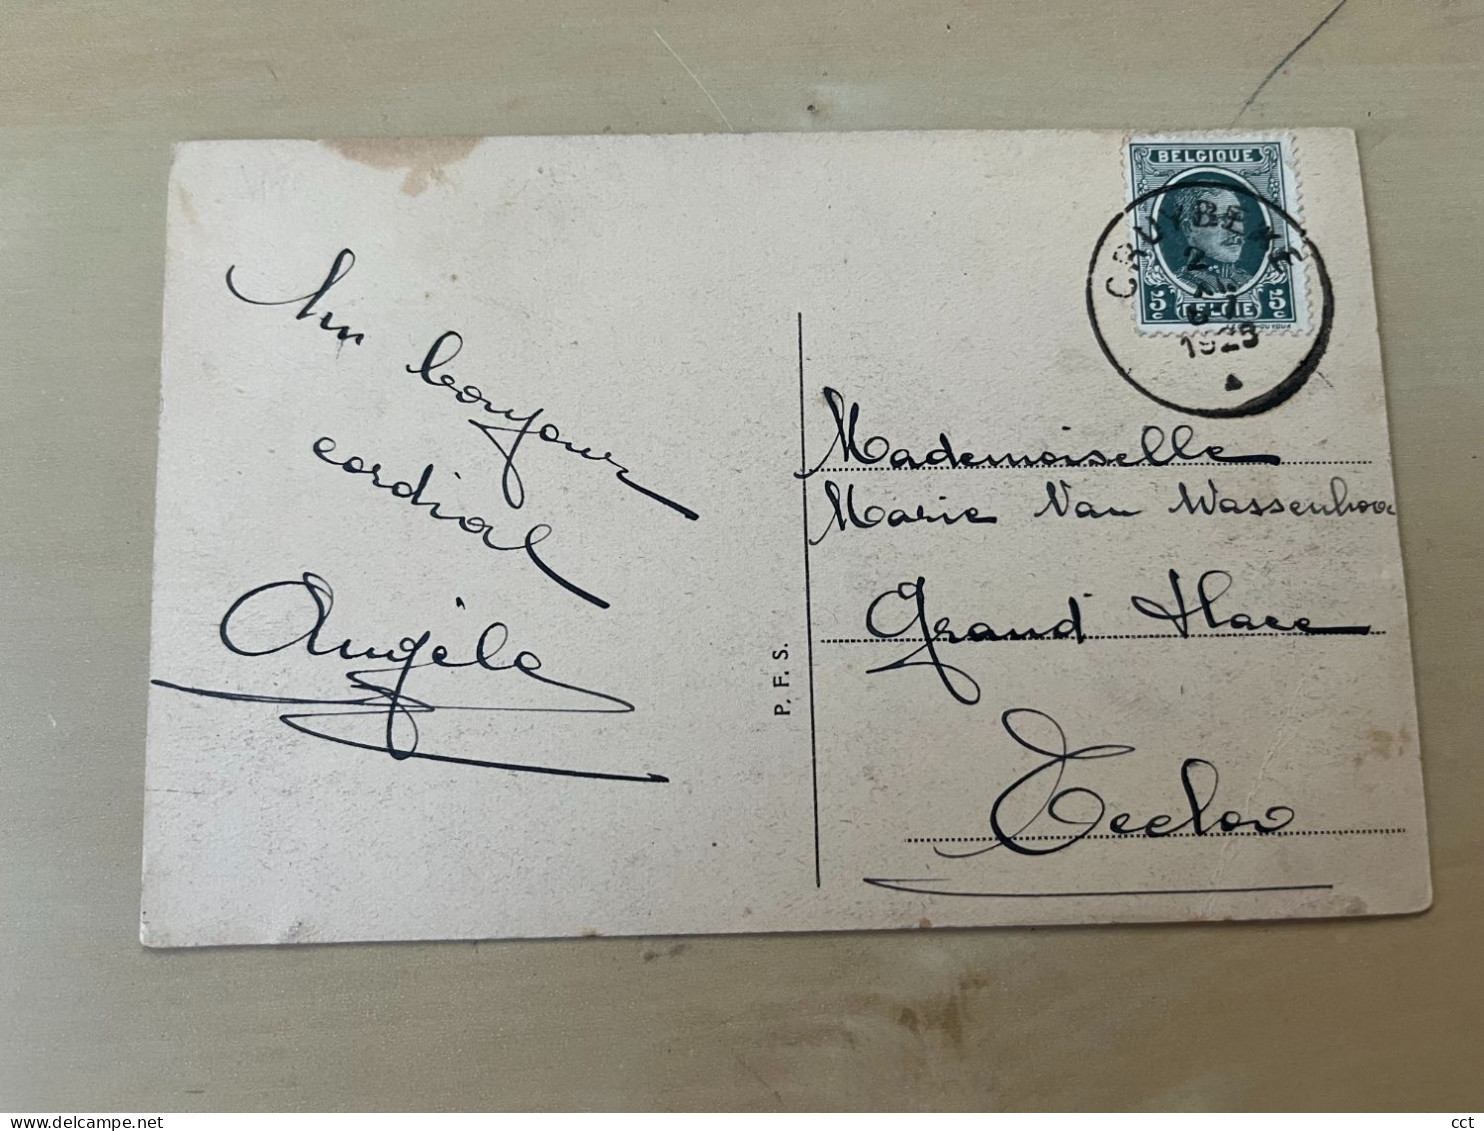 Un bonjour
cordial
Angèle
P. F. S.
BELGIQUE
5c BELGIE 5c
CRUYBEKE
1923
Mademoiselle
Marie Van Wassenhoo
Grand Place
Eecloo
cct